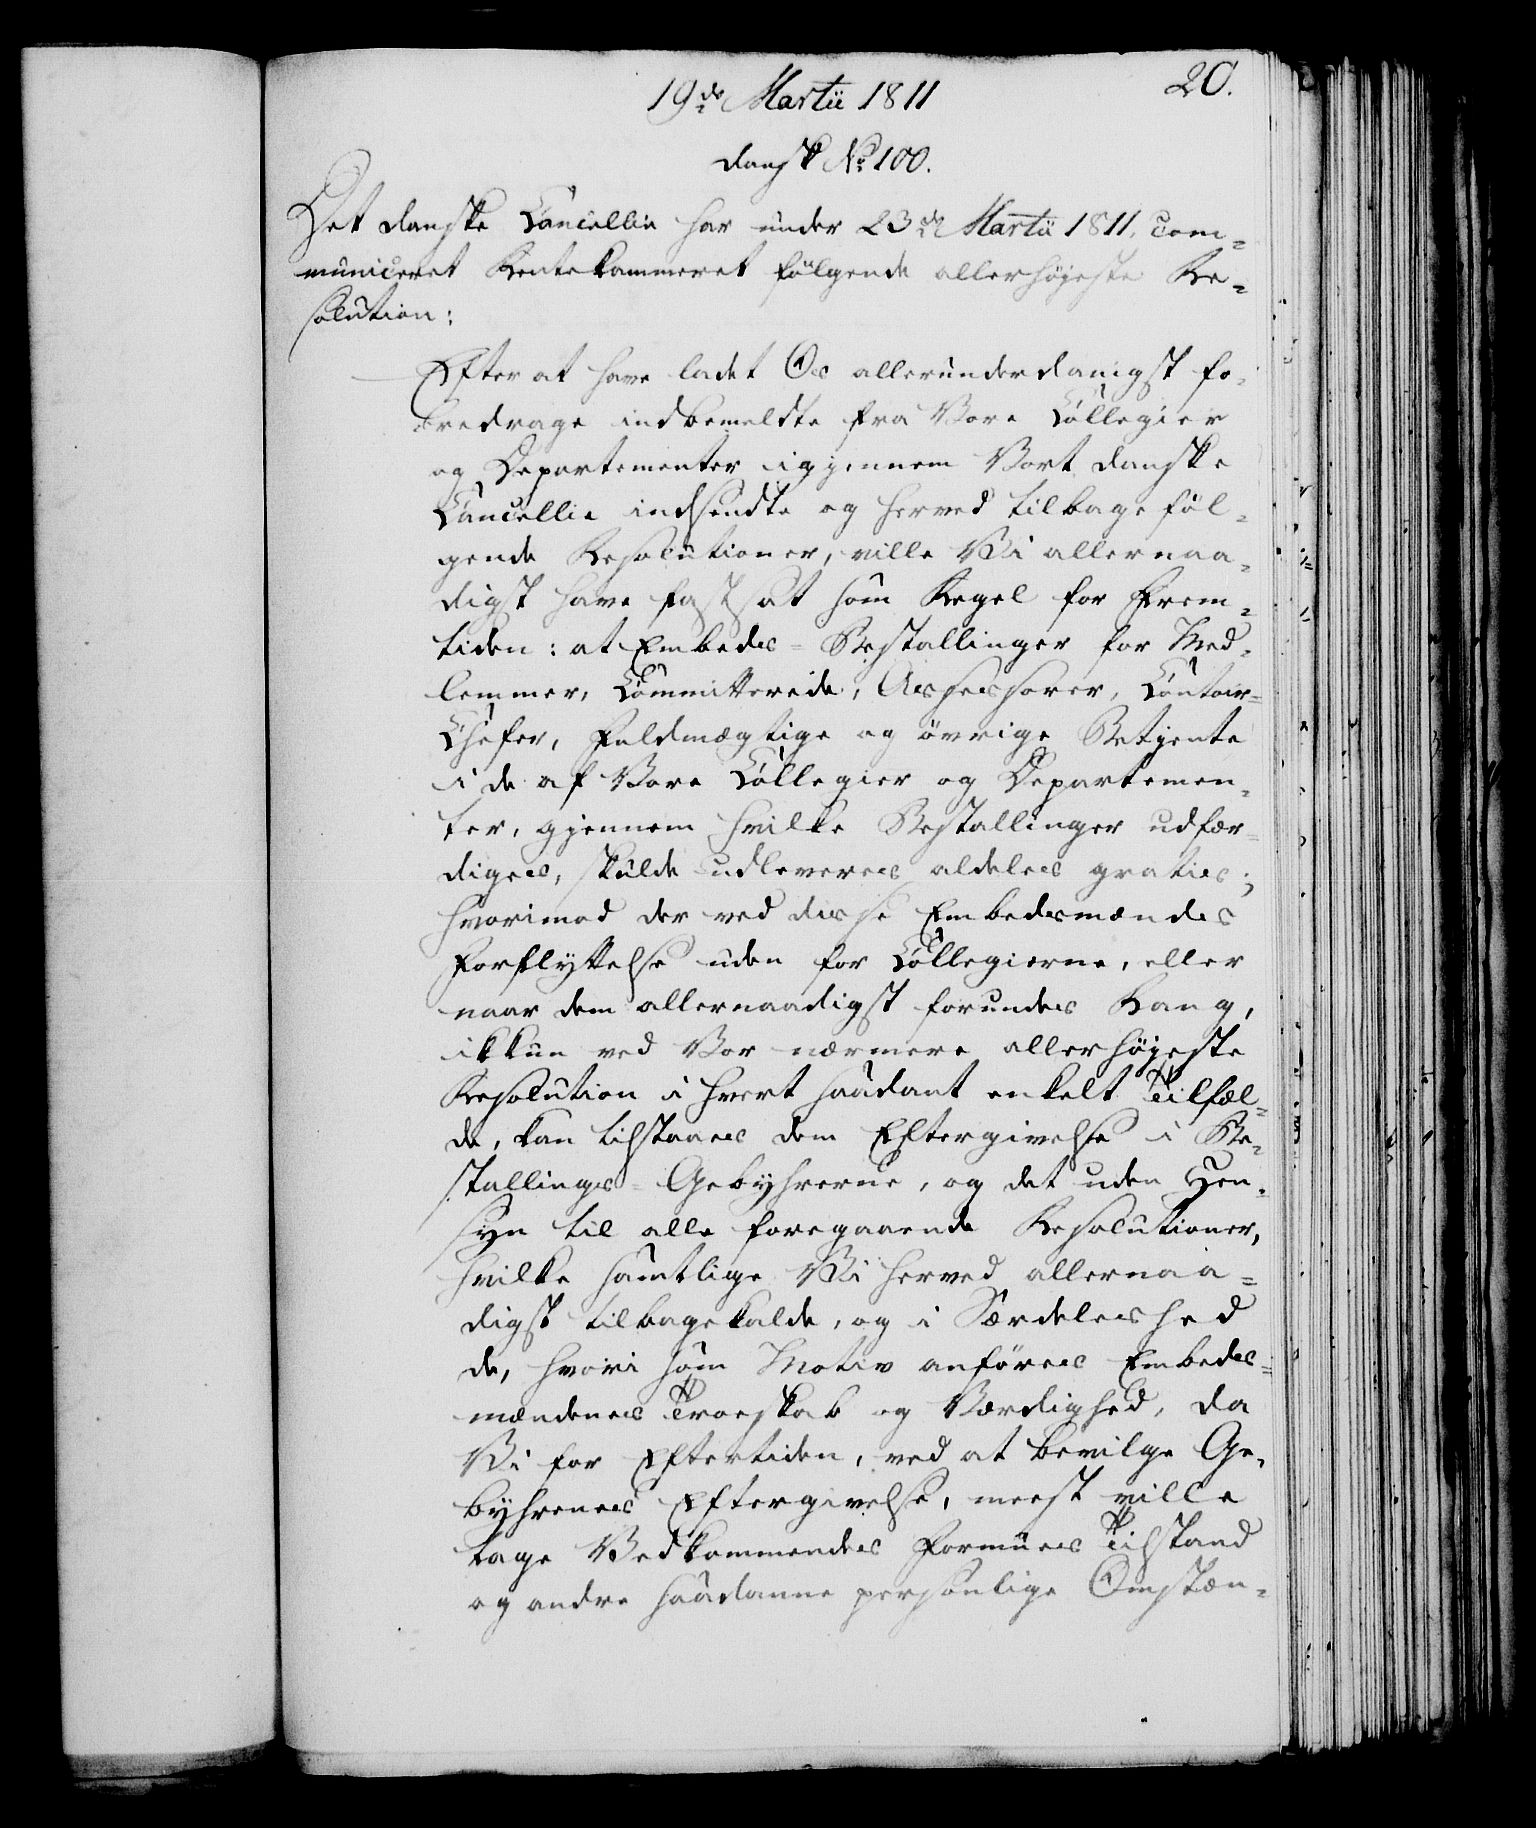 20.
19de Martii 1811
dansk No 100.
Det danske Cancellie har under 23de Martii 1811, com=
municeret Rentekammeret følgende allerhøjeste Re=
solution:
Efter at have ladet Os allerunderdanigst fo=
redrage indbemeldte fra Vore Collegier
og Departementer igjennem Vort danske
Cancellie indsendte og herved tilbageføl=
gende Resolutioner, ville Vi allernaa=
digst have fastsat som Regel for Frem=
tiden: at Embeds=Bestallinger for Med=
lemmer, Committerede, Assessorer, Contoir=
Chefer, Fuldmægtige og øvrige Betjente
i de af Vore Collegier og Departemen=
ter, gjennem hvilke Bestallinger udfær=
diges, skulde udleveres aldeles gratis;
hvorimod der ved disse Embedsmænds
Forflyttelse uden for Collegierne, eller
naar dem allernaadigst forundes Rang,
ikkun ved Vor nærmere allerhøjeste
Resolution i hvert saadant enkelt Tilfæl=
de, kan tilstaaes dem Eftergivelse i Be=
stallings=Gebyhrerne, og det uden Hen=
syn til alle foregaaende Resolutioner,
hvilke samtlige Vi herved allernaa=
digst tilbagekalde, og i Særdeleshed
de, hvori som Motiv anføres Embeds=
mændenes Troeskab og Værdighed, da
Vi for Eftertiden, ved at bevilge Ge=
byhrenes Eftergivelse, meest ville
tage Vedkommendes Formues Tilstand
og andre saadanne personlige Omstæn=